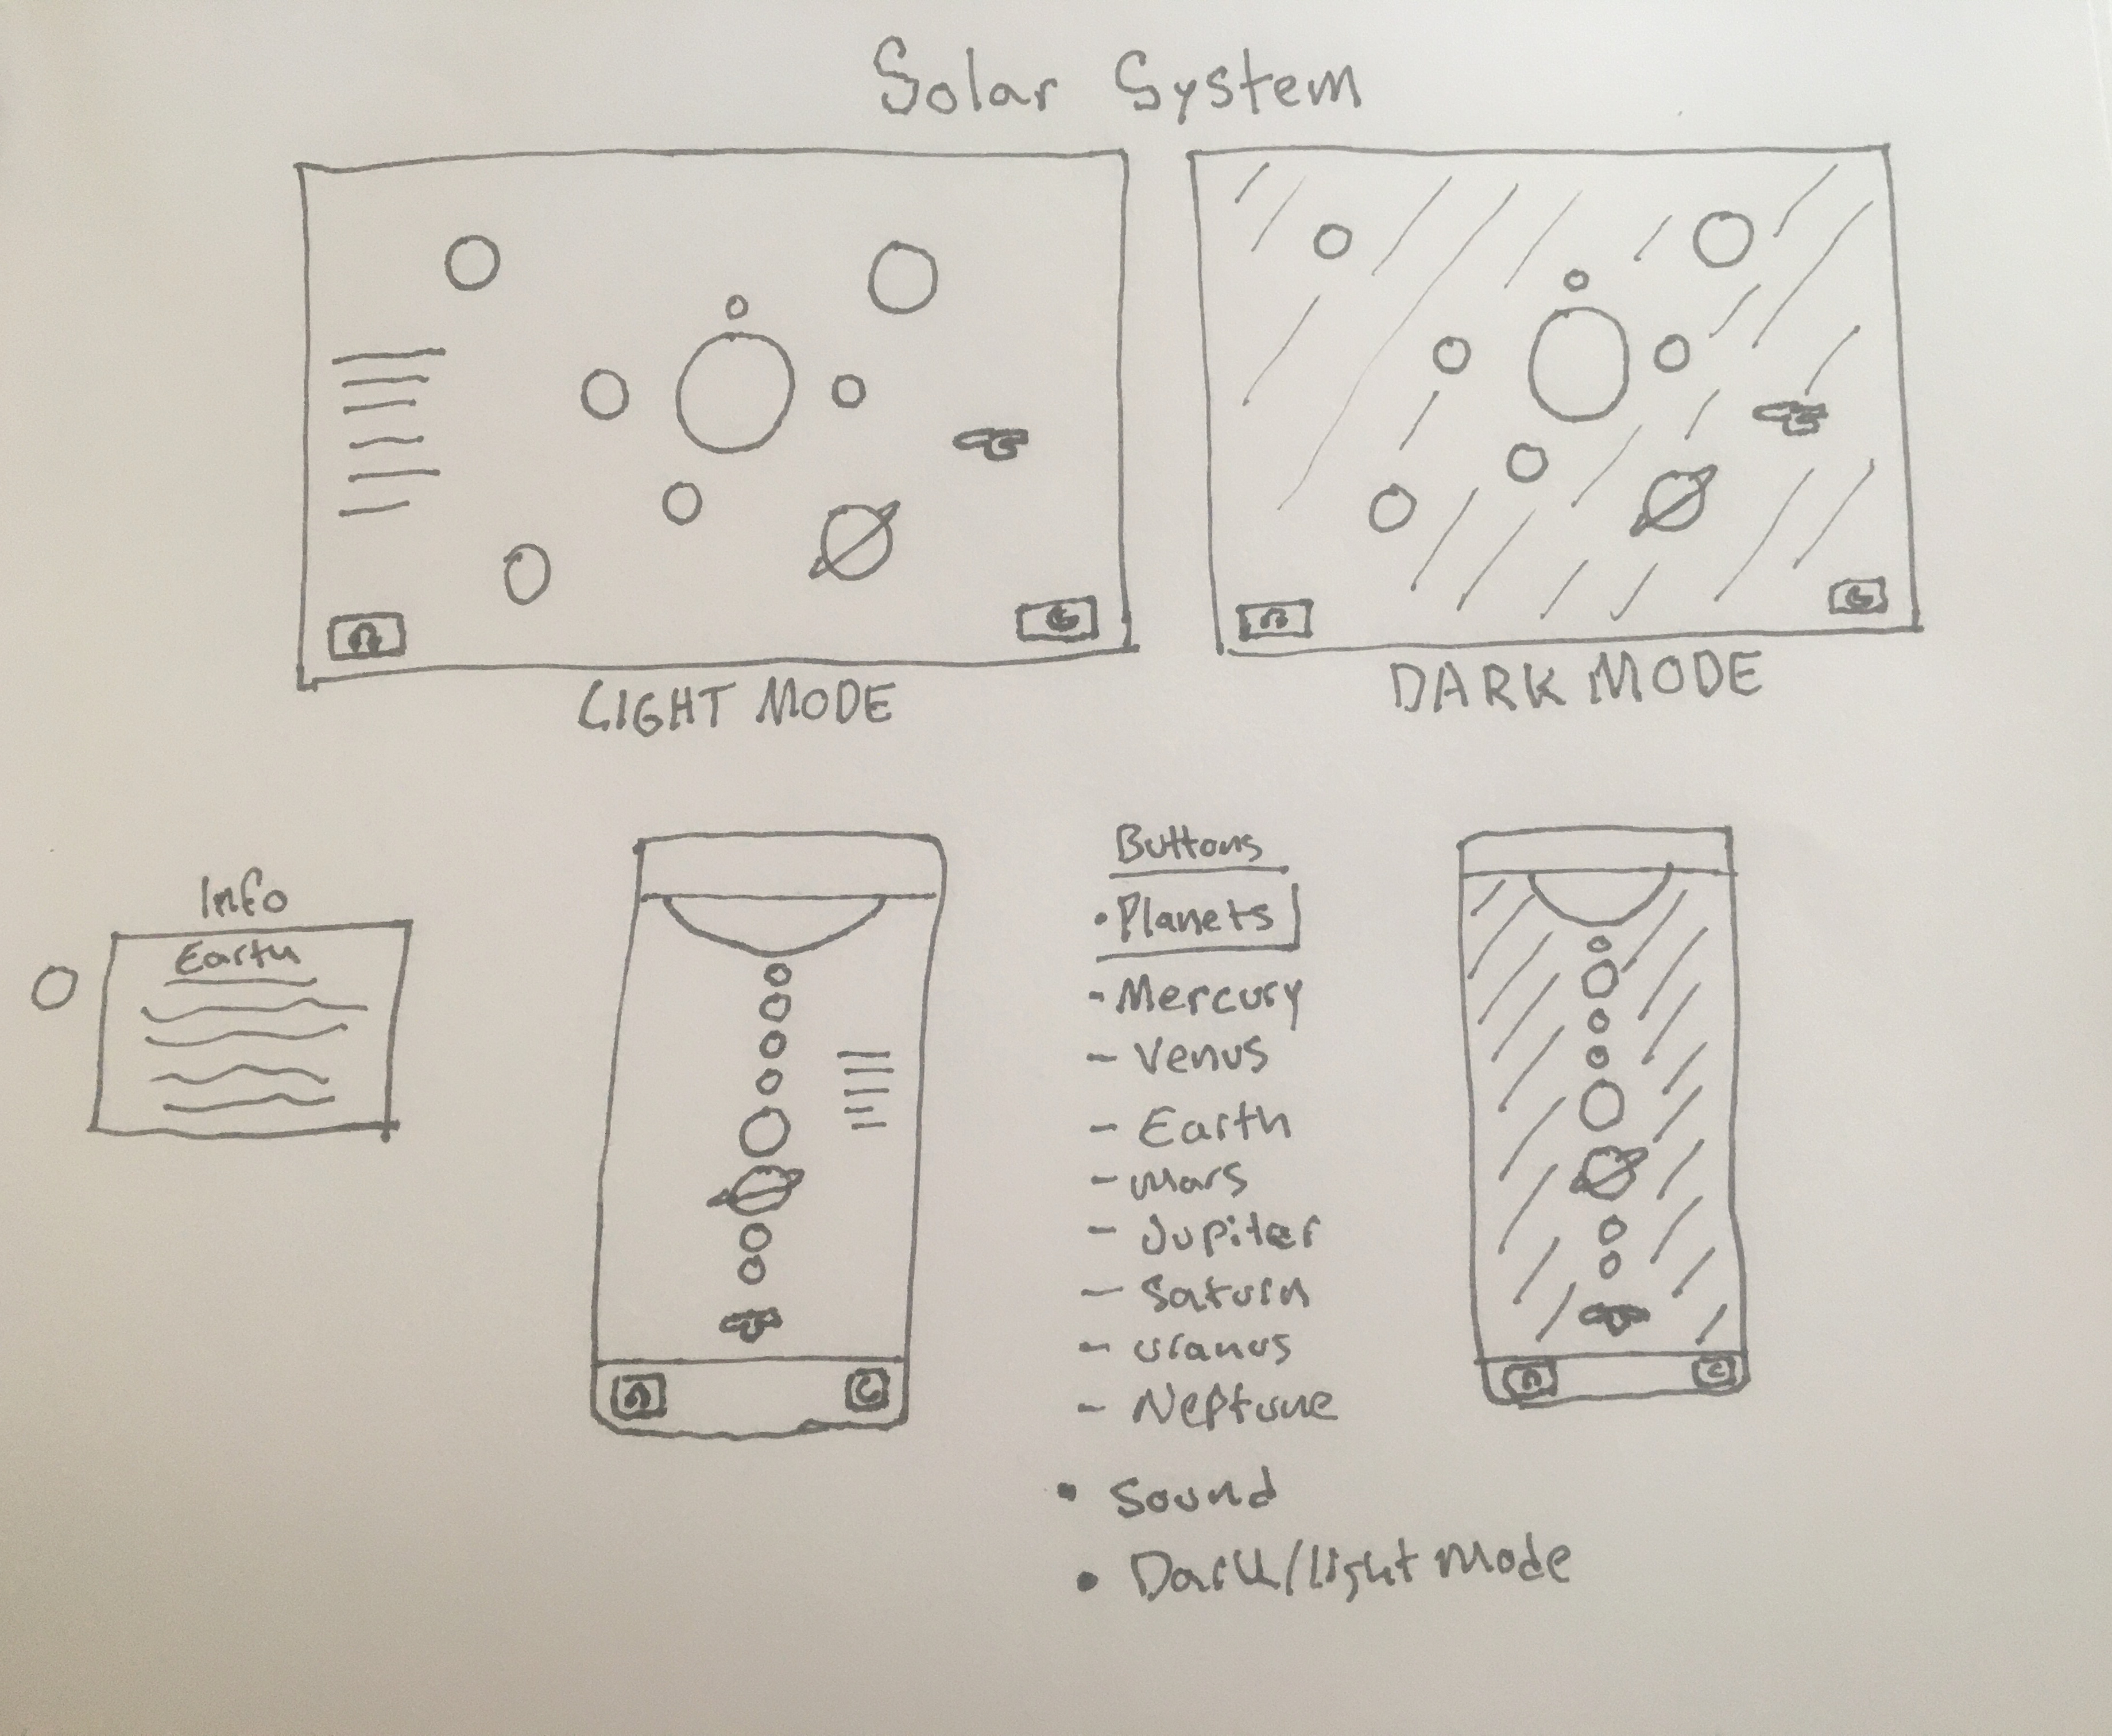 Solar System
LIGHT MODE
DARK MODE
Info
Earth
Buttons
• Planets
- Mercury
- Venus
- Earth
- Mars
- Jupiter
- Saturn
- Uranus
- Neptune
• Sound
• Dark/light Mode